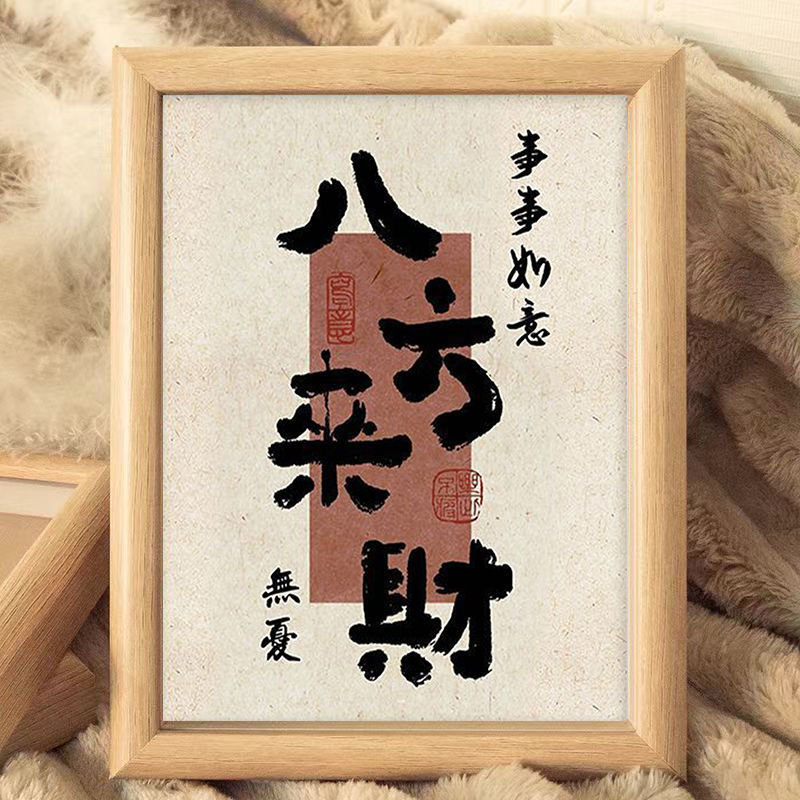 事事如意
八方来財
無憂